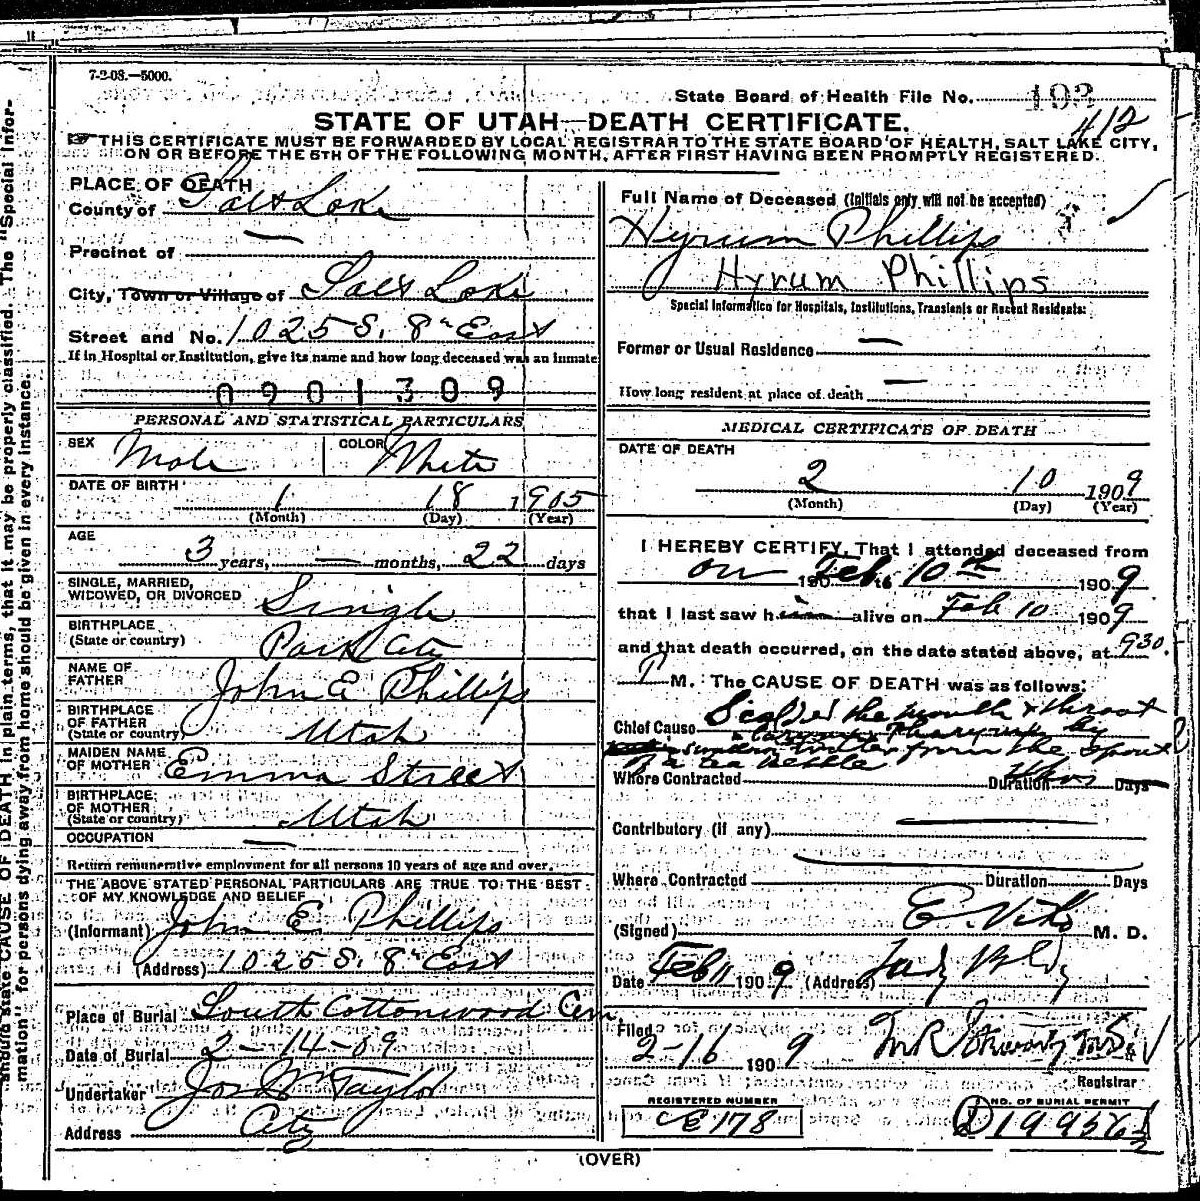 7-2-08.—5000.
State Board of Health File No. 193
412
STATE OF UTAH—DEATH CERTIFICATE.
THIS CERTIFICATE MUST BE FORWARDED BY LOCAL REGISTRAR TO THE STATE BOARD OF HEALTH, SALT LAKE CITY,
ON OR BEFORE THE 5TH OF THE FOLLOWING MONTH, AFTER FIRST HAVING BEEN PROMPTLY REGISTERED.
PLACE OF DEATH
County of Salt Lake
Precinct of —
City, Town or Village of Salt Lake
Street and No. 1025 S. 8th East
If in Hospital or Institution, give its name and how long deceased was an inmate
0901309
PERSONAL AND STATISTICAL PARTICULARS
SEX Male COLOR White
DATE OF BIRTH 1 18 1905
(Month) (Day) (Year)
AGE
3 years, — months, 22 days
SINGLE, MARRIED,
WIDOWED, OR DIVORCED Single
BIRTHPLACE
(State or country) Park City
NAME OF
FATHER John E Phillips
BIRTHPLACE
OF FATHER
(State or country) Utah
MAIDEN NAME
OF MOTHER Emma Street
BIRTHPLACE
OF MOTHER
(State or country) Utah
OCCUPATION —
Return remunerative employment for all persons 10 years of age and over.
THE ABOVE STATED PERSONAL PARTICULARS ARE TRUE TO THE BEST
OF MY KNOWLEDGE AND BELIEF
(Informant) John E Phillips
(Address) 1025 S. 8th East
Place of Burial South Cottonwood Cem.
Date of Burial 2-14-09
Undertaker Jos Wm Taylor
Address City
Full Name of Deceased (Initials only will not be accepted)
Hyrum Phillips
Hyrum Phillips
Special Information for Hospitals, Institutions, Transients or Recent Residents:
Former or Usual Residence —
How long resident at place of death —
MEDICAL CERTIFICATE OF DEATH
DATE OF DEATH
2 10 1909
(Month) (Day) (Year)
I HEREBY CERTIFY, That I attended deceased from
on 190 Feb to 10th 1909
that I last saw him alive on Feb 10 1909
and that death occurred, on the date stated above, at 930.
P M. The CAUSE OF DEATH was as follows:
Chief Cause Scalded the mouth & throat
& Pharynx by
water from the spout
of a tea kettle
Where Contracted Duration Days
Contributory (if any) —
Where Contracted Duration Days
(Signed) E. Viko M. D.
Date Feb 11 1909 (Address) Judg Bldg
Filed
2-16 1909
Registrar
REGISTERED NUMBER
CE178
NO. OF BURIAL PERMIT
D 19956 1/2
(OVER)
should state CAUSE OF DEATH in plain terms, that it may be properly classified. The "Special Infor-
mation" for persons dying away from home should be given in every instance.